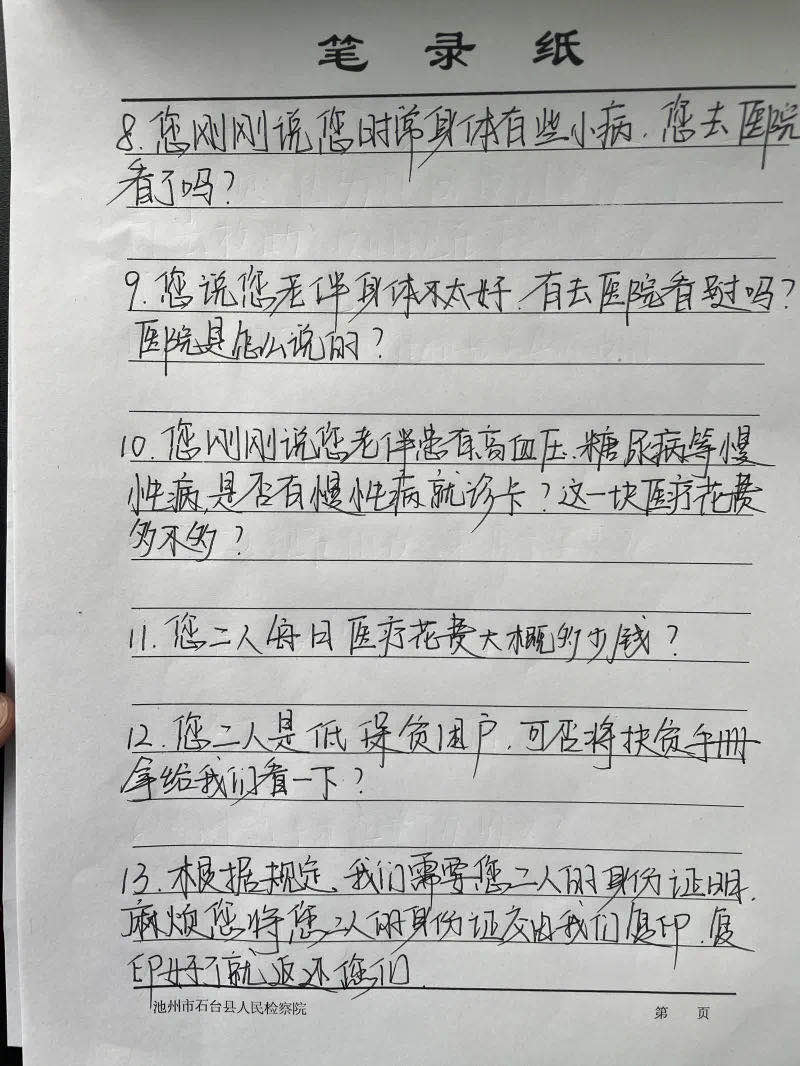 笔 录 纸
8. 您刚刚说您时常身体有些小病，您去医院
看了吗？
9. 您说您老伴身体不太好，有去医院看过吗？
医院是怎么说的？
10. 您刚刚说您老伴患有高血压、糖尿病等慢
性病，是否有慢性病就诊卡？这一块医疗花费
多不多？
11. 您二人每日医疗花费大概多少钱？
12. 您二人是低保贫困户，可否将扶贫手册
拿给我们看一下？
13. 根据规定，我们需要您二人的身份证明，
麻烦您将您二人的身份证交由我们复印，复
印好了就返还您们。
池州市石台县人民检察院
第 页